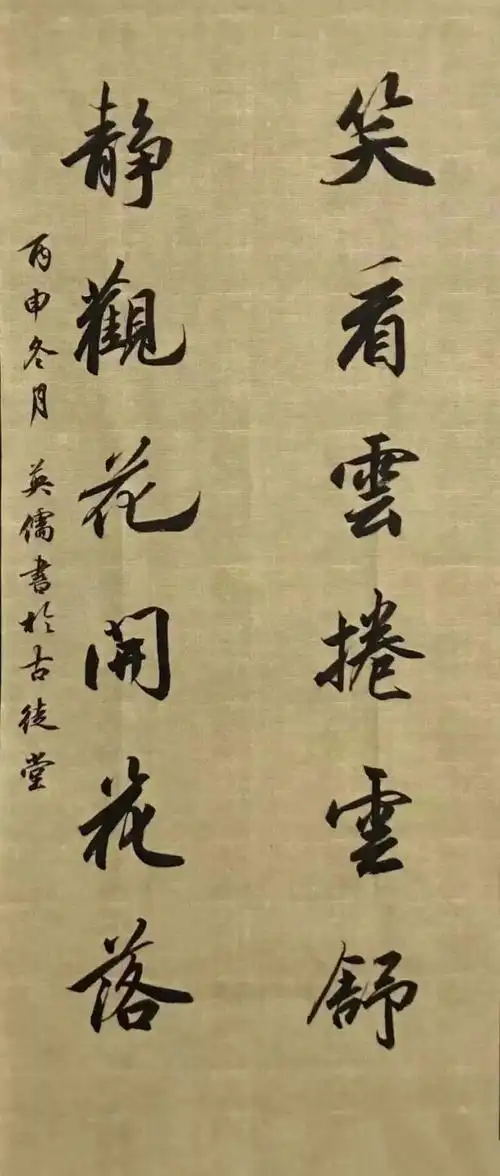 笑看雲捲雲舒
静觀花開花落
丙申冬月 英儒書於古徒堂